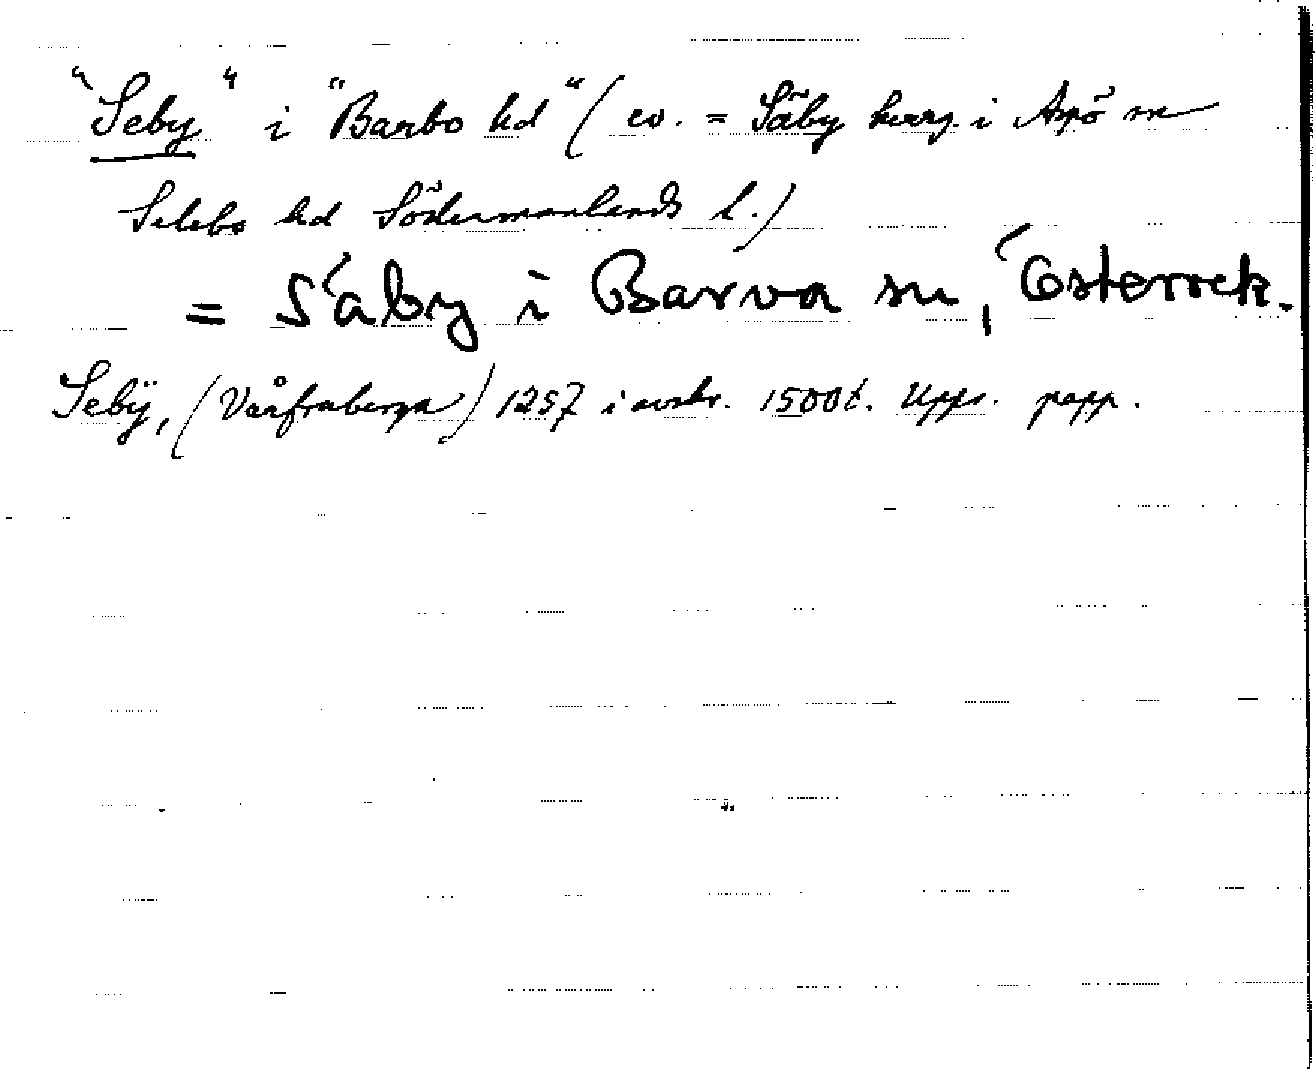 "Seby" i "Barbo hd" (ev. = Säby herrg. i Aspö sn
Selebo hd Södermanlands l.)
= Säby i Barva sn, Österrek.
Sebÿ, (Vårfruberga) 1257 i avskr. 1500t. Upps. papp.